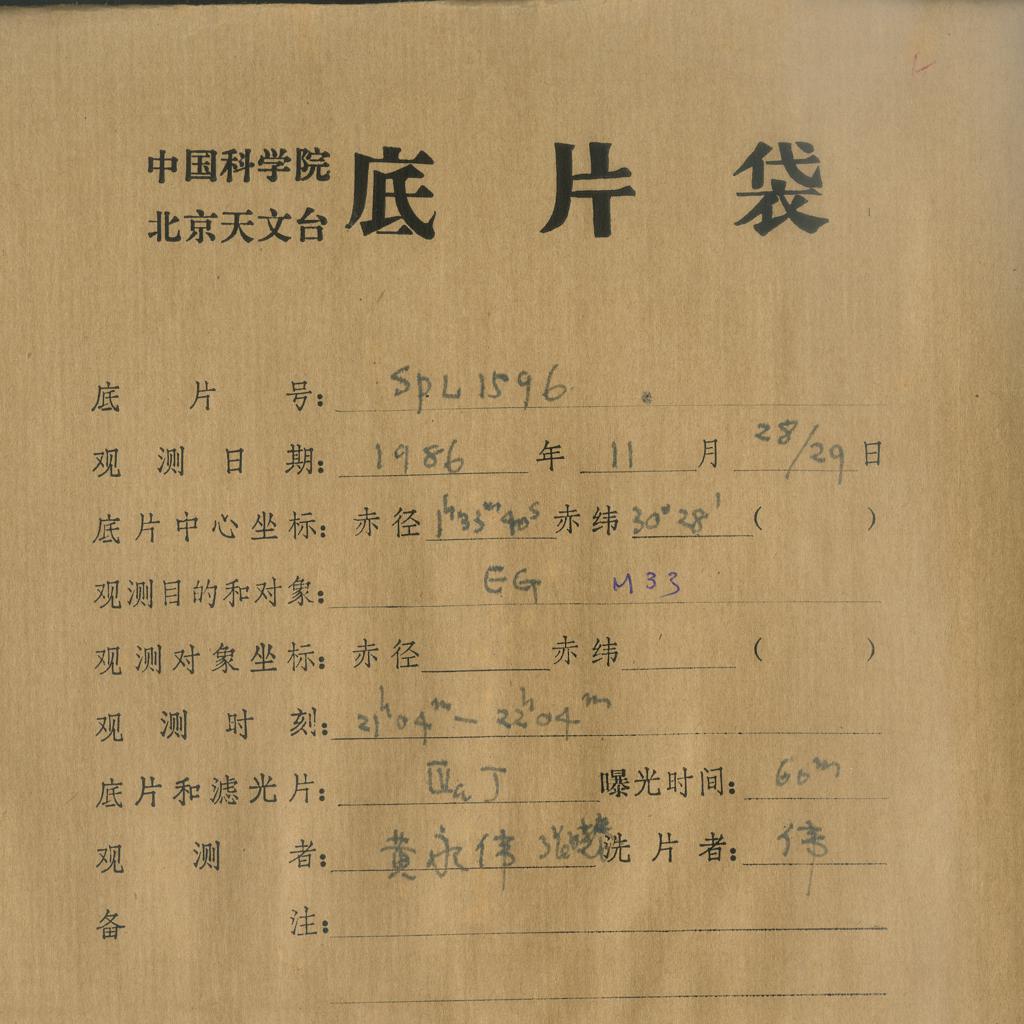 中国科学院
北京天文台
底片袋
底片号: SPL1596
观测日期: 1986年11月28/29日
底片中心坐标: 赤径1ʰ33ᵐ40ˢ赤纬30°28′( )
观测目的和对象: EG M33
观测对象坐标: 赤径 赤纬 ( )
观测时刻: 21ʰ04ᵐ—22ʰ04ᵐ
底片和滤光片: ⅡaJ 曝光时间: 60ᵐ
观测者: 黄永伟 洗片者: 伟
备注: